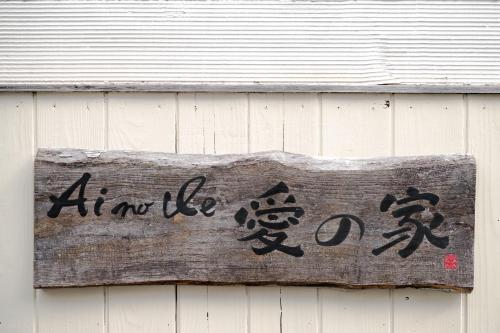 Ai no Ie 愛の家